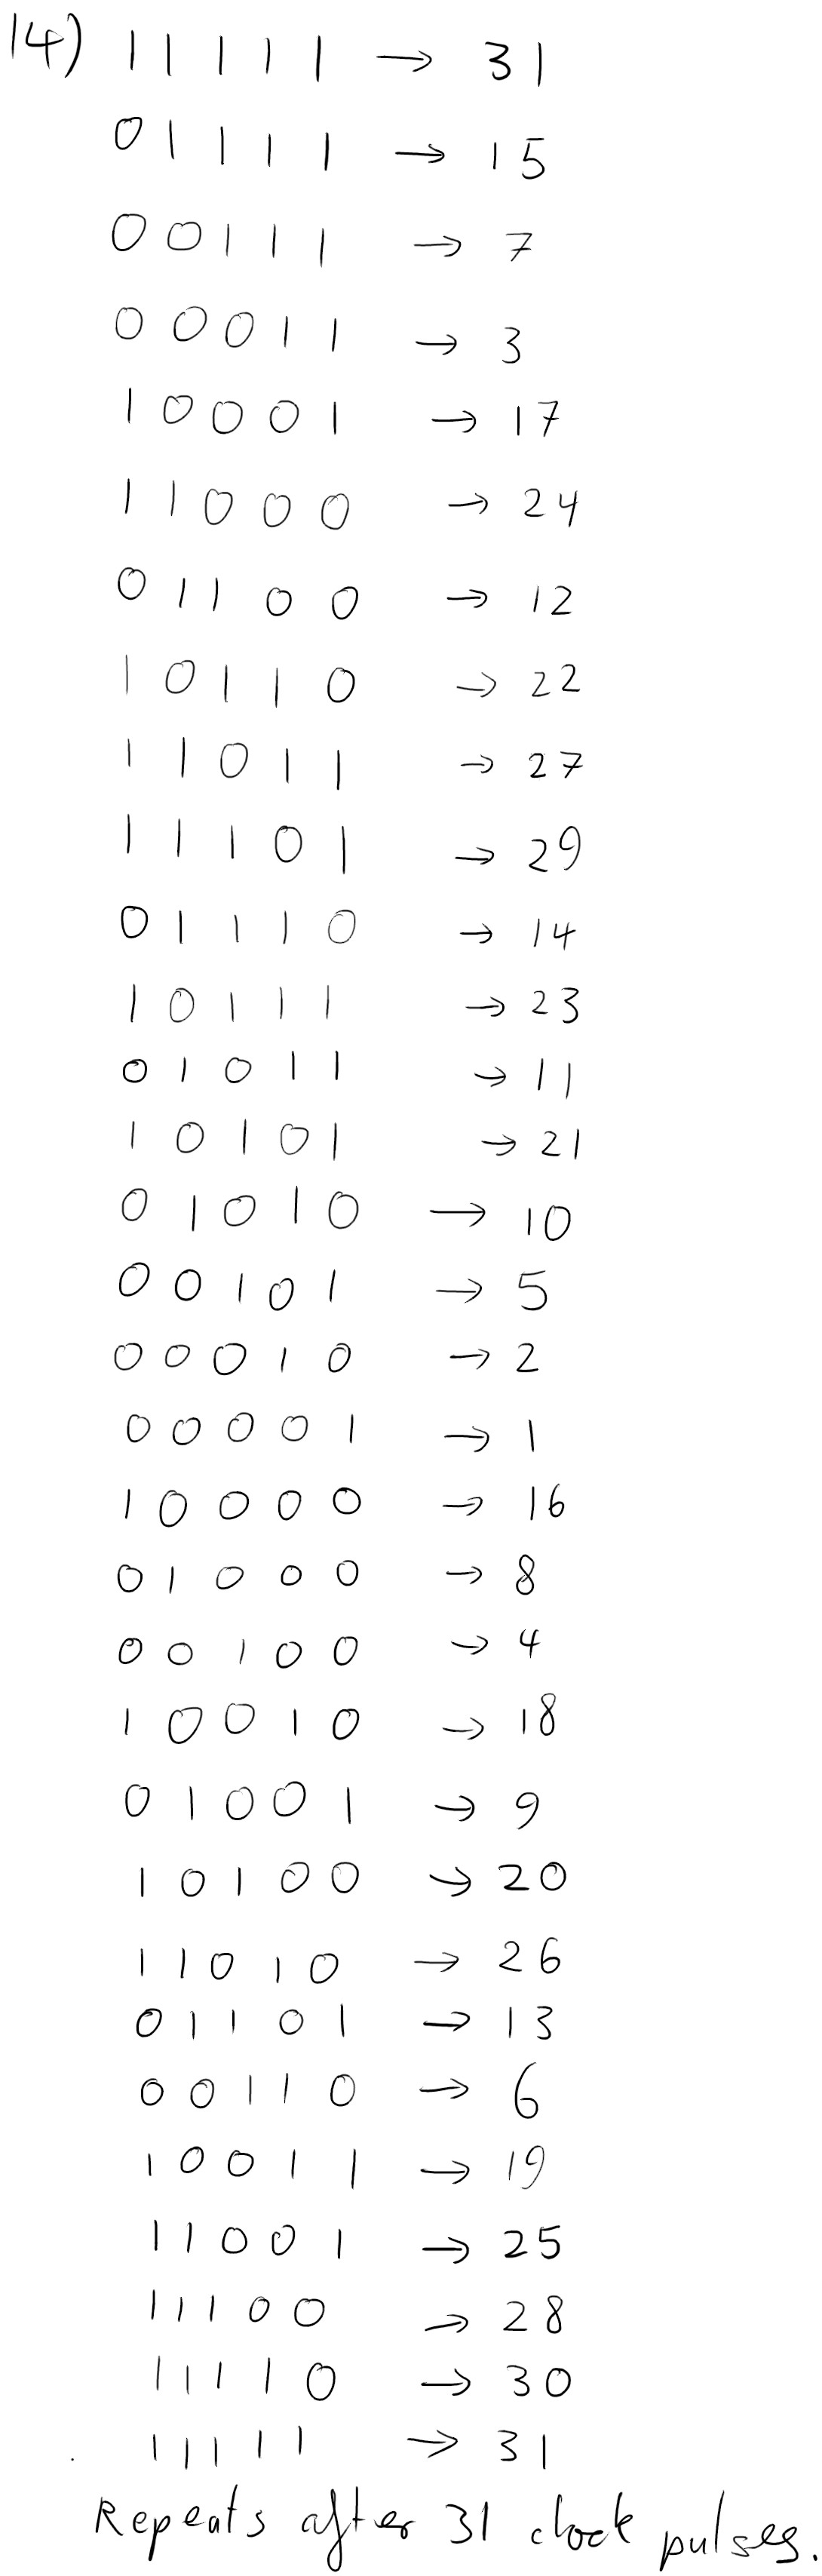 14) 1 1 1 1 1 → 31
0 1 1 1 1 → 15
0 0 1 1 1 → 7
0 0 0 1 1 → 3
1 0 0 0 1 → 17
1 1 0 0 0 → 24
0 1 1 0 0 → 12
1 0 1 1 0 → 22
1 1 0 1 1 → 27
1 1 1 0 1 → 29
0 1 1 1 0 → 14
1 0 1 1 1 → 23
0 1 0 1 1 → 11
1 0 1 0 1 → 21
0 1 0 1 0 → 10
0 0 1 0 1 → 5
0 0 0 1 0 → 2
0 0 0 0 1 → 1
1 0 0 0 0 → 16
0 1 0 0 0 → 8
0 0 1 0 0 → 4
1 0 0 1 0 → 18
0 1 0 0 1 → 9
1 0 1 0 0 → 20
1 1 0 1 0 → 26
0 1 1 0 1 → 13
0 0 1 1 0 → 6
1 0 0 1 1 → 19
1 1 0 0 1 → 25
1 1 1 0 0 → 28
1 1 1 1 0 → 30
1 1 1 1 1 → 31
Repeats after 31 clock pulses.